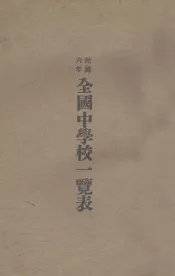 民國
六年
全國中學校一覽表